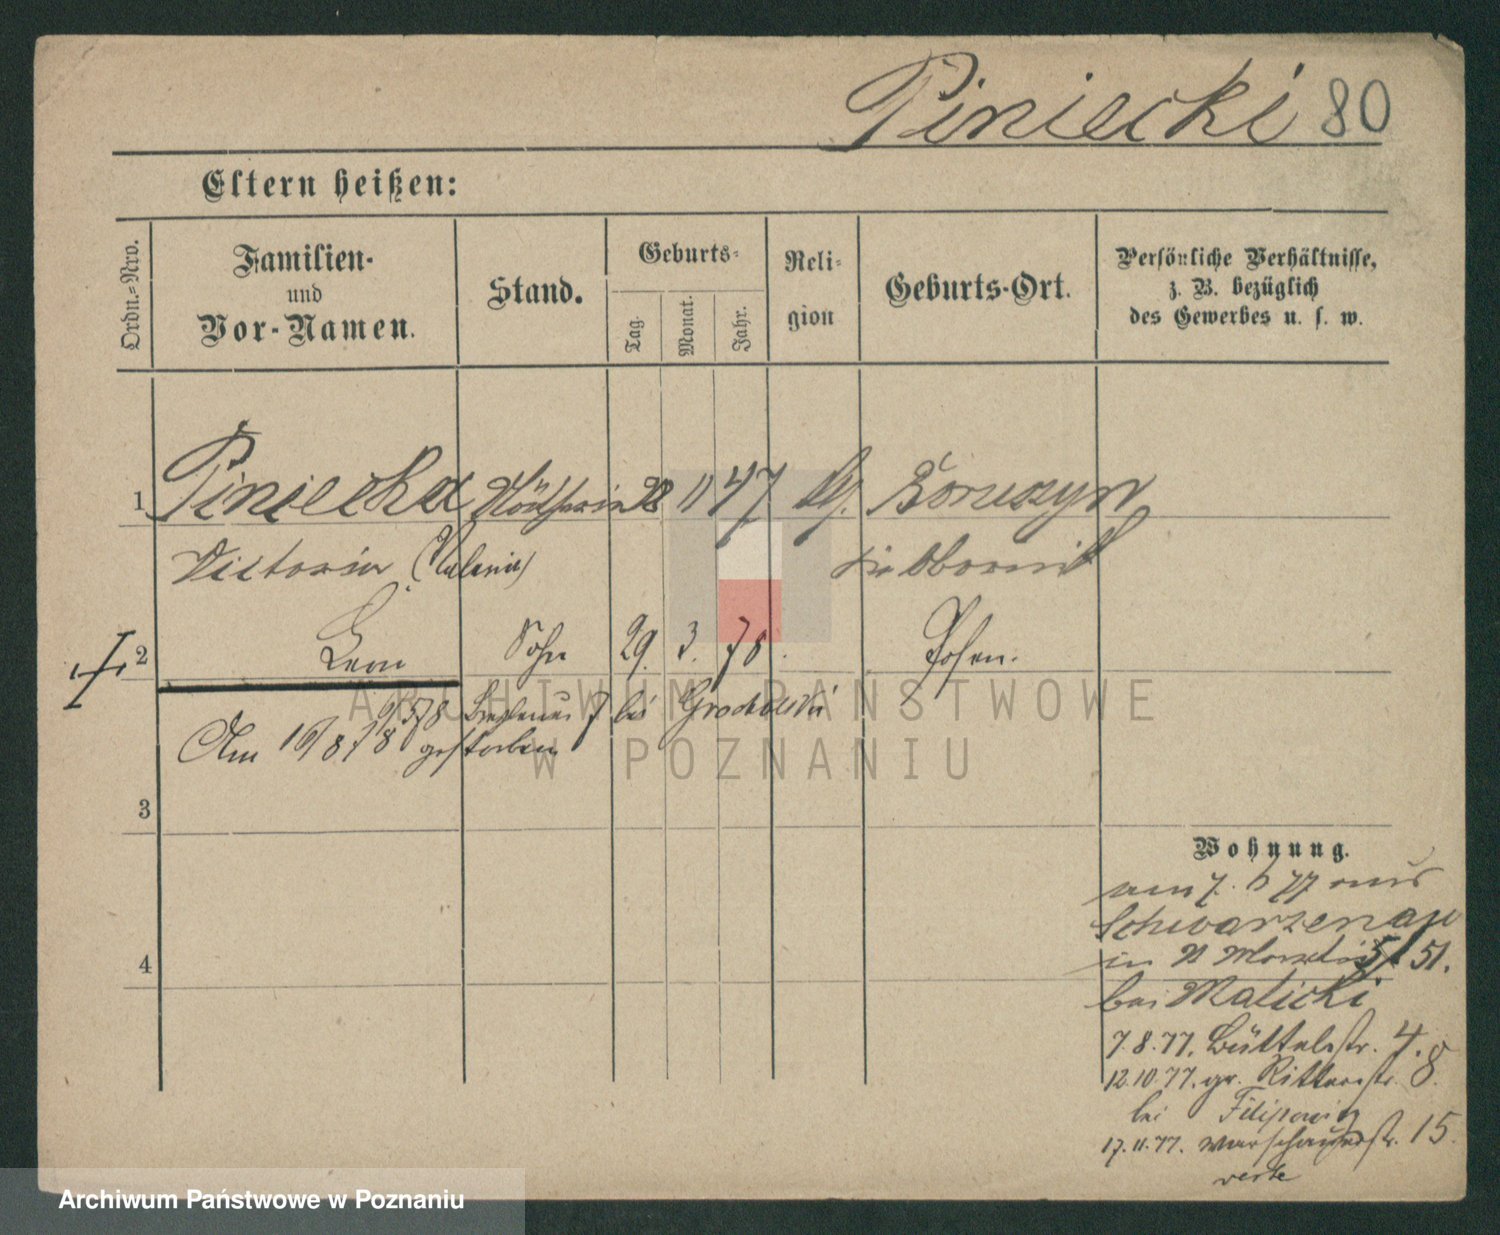 Piniecki 80
Eltern heißen:
Ordn.-Nro.
Familien-
und
Vor-Namen.
Stand.
Geburts-
Tag.
Monat.
Jahr.
Reli-
gion
Geburts-Ort.
Persönliche Verhältnisse,
z. B. bezüglich
des Gewerbes u. s. w.
1 Piniecka 11 47
Victoria
2 Leon Sohn 29. 3. 78. Posen.
bei
Am 16/8 78 gestorben
3
4
Wohnung.
am 7. 77 aus
Schwarzenau
in 51.
bei Malicki
7.8.77. Büttelstr. 4.
12.10.77. gr. Ritterstr. 8.
bei Filipowicz
17.11.77. Warschauerstr. 15.
verte
ARCHIWUM PAŃSTWOWE
W POZNANIU
Archiwum Państwowe w Poznaniu